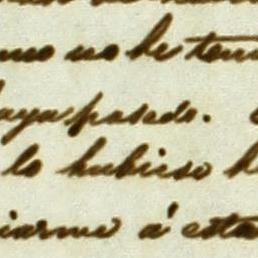 no he ten
haya pasado.
lo hubiese h
iarme á esta